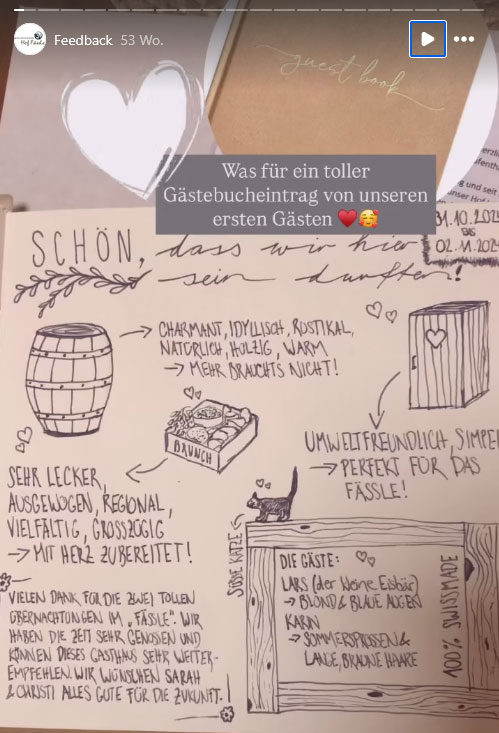 Feedback 53 Wo.
guest book
Was für ein toller
Gästebucheintrag von unseren
ersten Gästen ♥️🥰
und seit
31.10.202
BIS
02.11.202
SCHÖN, dass wir hier
sein durften!
CHARMANT, IDYLLISCH, RUSTIKAL,
NATÜRLICH, HOLZIG, WARM
→ MEHR BRAUCHTS NICHT!
BRUNCH
UMWELTFREUNDLICH, SIMPEL
→ PERFEKT FÜR DAS
FÄSSLE!
SEHR LECKER,
AUSGEWOGEN, REGIONAL,
VIELFÄLTIG, GROSSZÜGIG
→ MIT HERZ ZUBEREITET!
SÜSSE KATZE
DIE GÄSTE:
LARS (der kleine Eisbär)
→ BLOND & BLAUE AUGEN
KARIN
→ SOMMERSPROSSEN &
LANGE, BRAUNE HAARE
100% SWISSMADE
VIELEN DANK FÜR DIE ZWEI TOLLEN
ÜBERNACHTUNGEN IM „FÄSSLE". WIR
HABEN DIE ZEIT SEHR GENOSSEN UND
KÖNNEN DIESES GASTHAUS SEHR WEITER-
EMPFEHLEN. WIR WÜNSCHEN SARAH
& CHRISTI ALLES GUTE FÜR DIE ZUKUNFT.